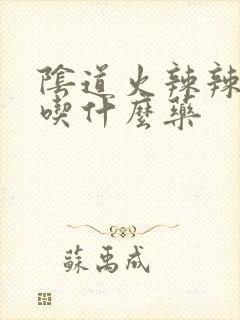 陰道火辣辣
喫什麼藥
蘇禹成